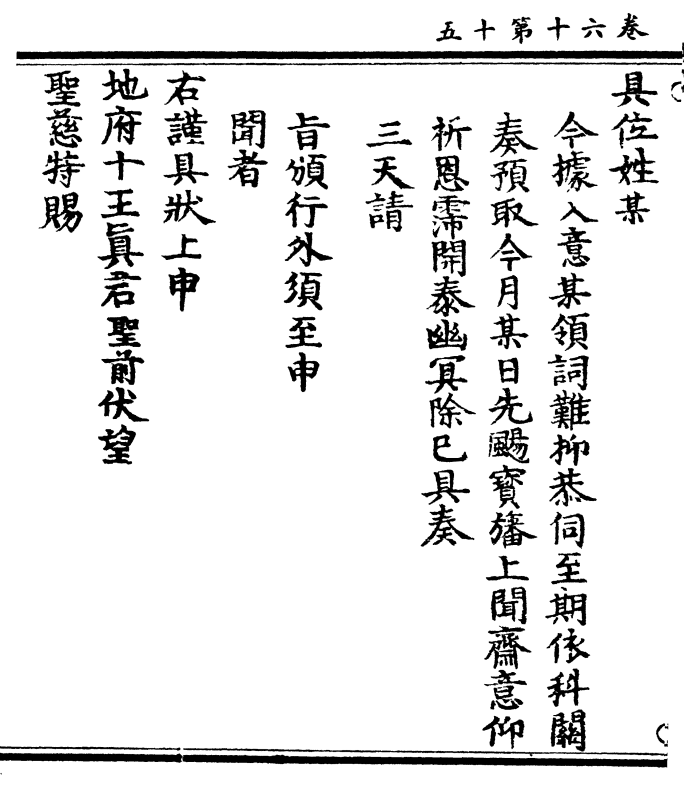 卷六十第十五
具位姓某
今據入意某領詞難抑恭伺至期依科關
奏預取今月某日先颺寶旛上聞齋意仰
祈恩霈開泰幽冥除已具奏
三天請
旨頒行外須至申
聞者
右謹具狀上申
地府十王眞君聖前伏望
聖慈特賜